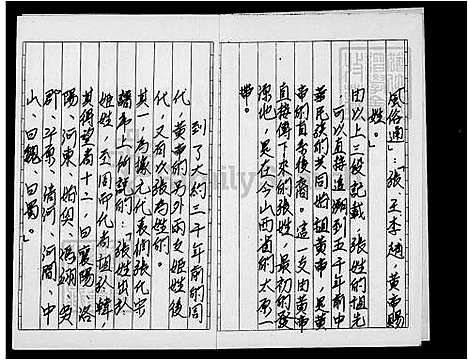 風俗通」：張、王、李、趙，黃帝賜
姓。」
由以上三段記載，張姓的祖先
，可以直接追溯到五千年前中
華民族的共同始祖黃帝，是黃
帝的直系後裔。這一支由黃帝
直接傳下來的張姓，最初的發
源地，是在今山西省的太原一
帶。
到了大約三千年前的周
代，黃帝的另外兩支姬姓後
代，又有以張為姓的。
其一，為據元代表們張氏宗
譜布上所說的：「張姓出於
姬姓，至周而代為韓，
其得望者十二，曰襄陽、洛
陽、河東、始興、馮翊、吳
郡、平原、清河、河間、中
山、曰魏、曰蜀。」